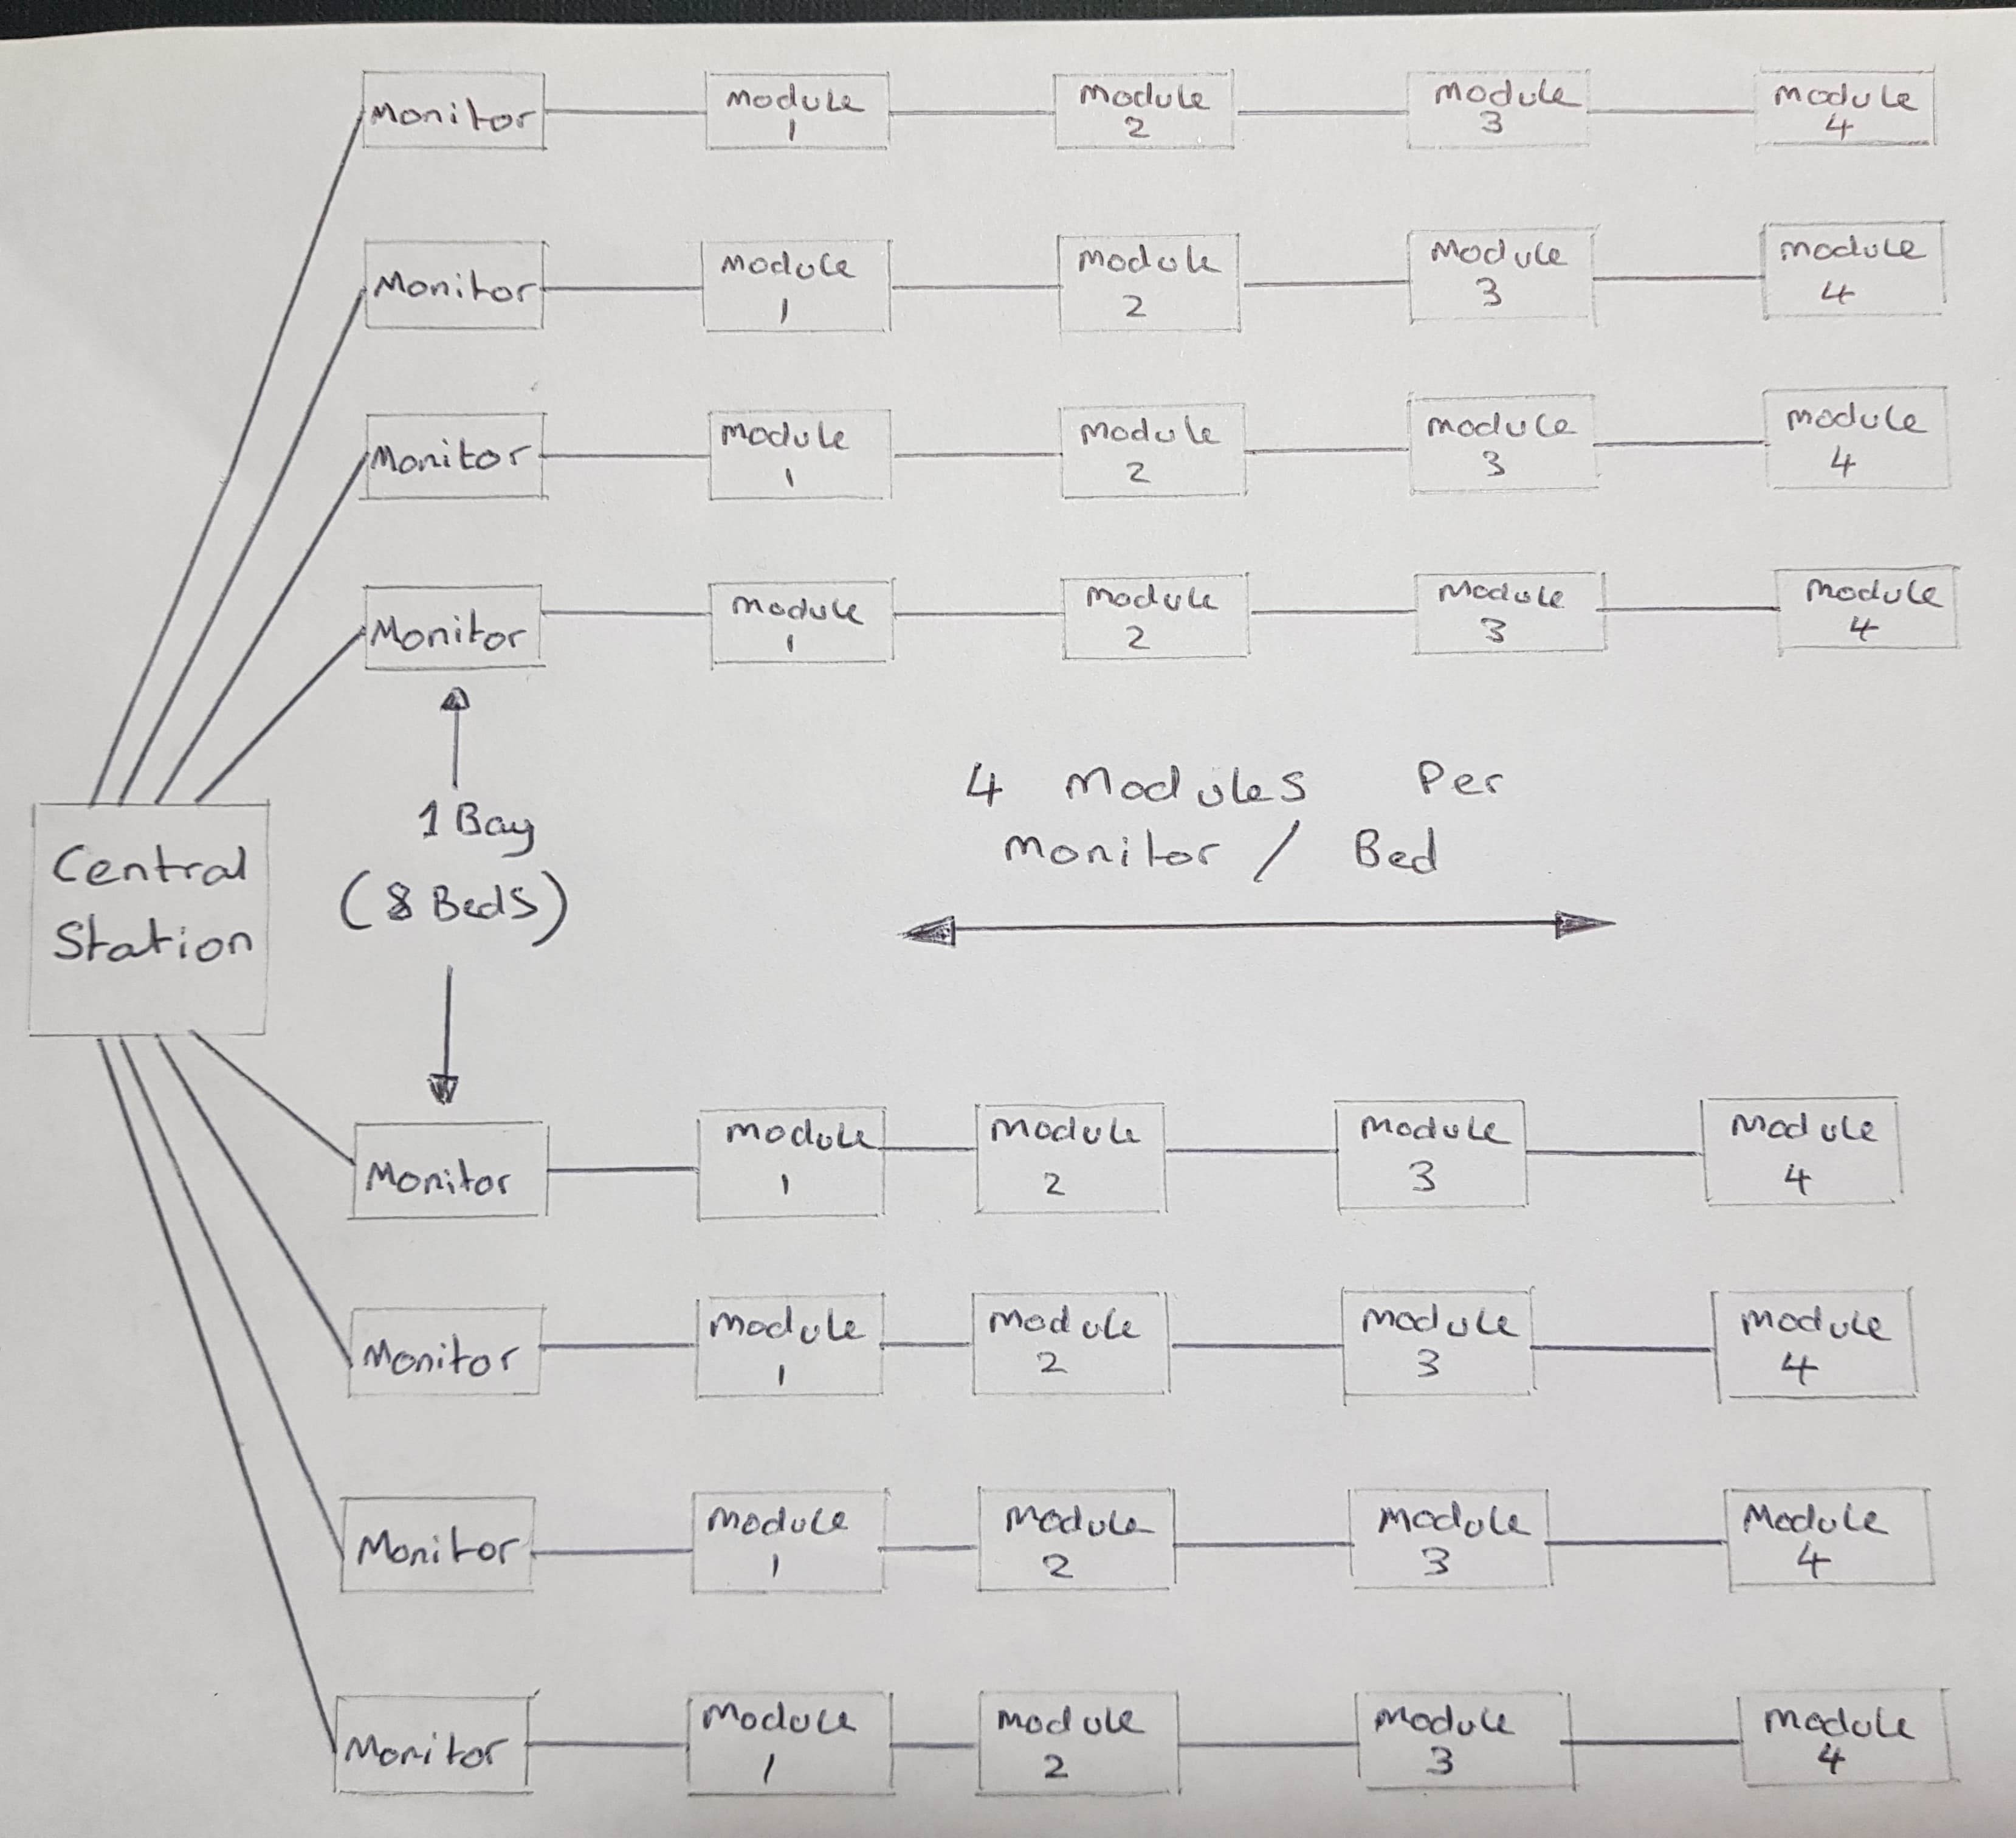 Monitor
Module
1
Module
2
Module
3
Module
4
Monitor
Module
1
Module
2
Module
3
Module
4
Monitor
Module
1
Module
2
Module
3
Module
4
Monitor
Module
1
Module
2
Module
3
Module
4
Central
Station
1 Bay
(8 Beds)
4 Modules Per
Monitor / Bed
Monitor
Module
1
Module
2
Module
3
Module
4
Monitor
Module
1
Module
2
Module
3
Module
4
Monitor
Module
1
Module
2
Module
3
Module
4
Monitor
Module
1
Module
2
Module
3
Module
4